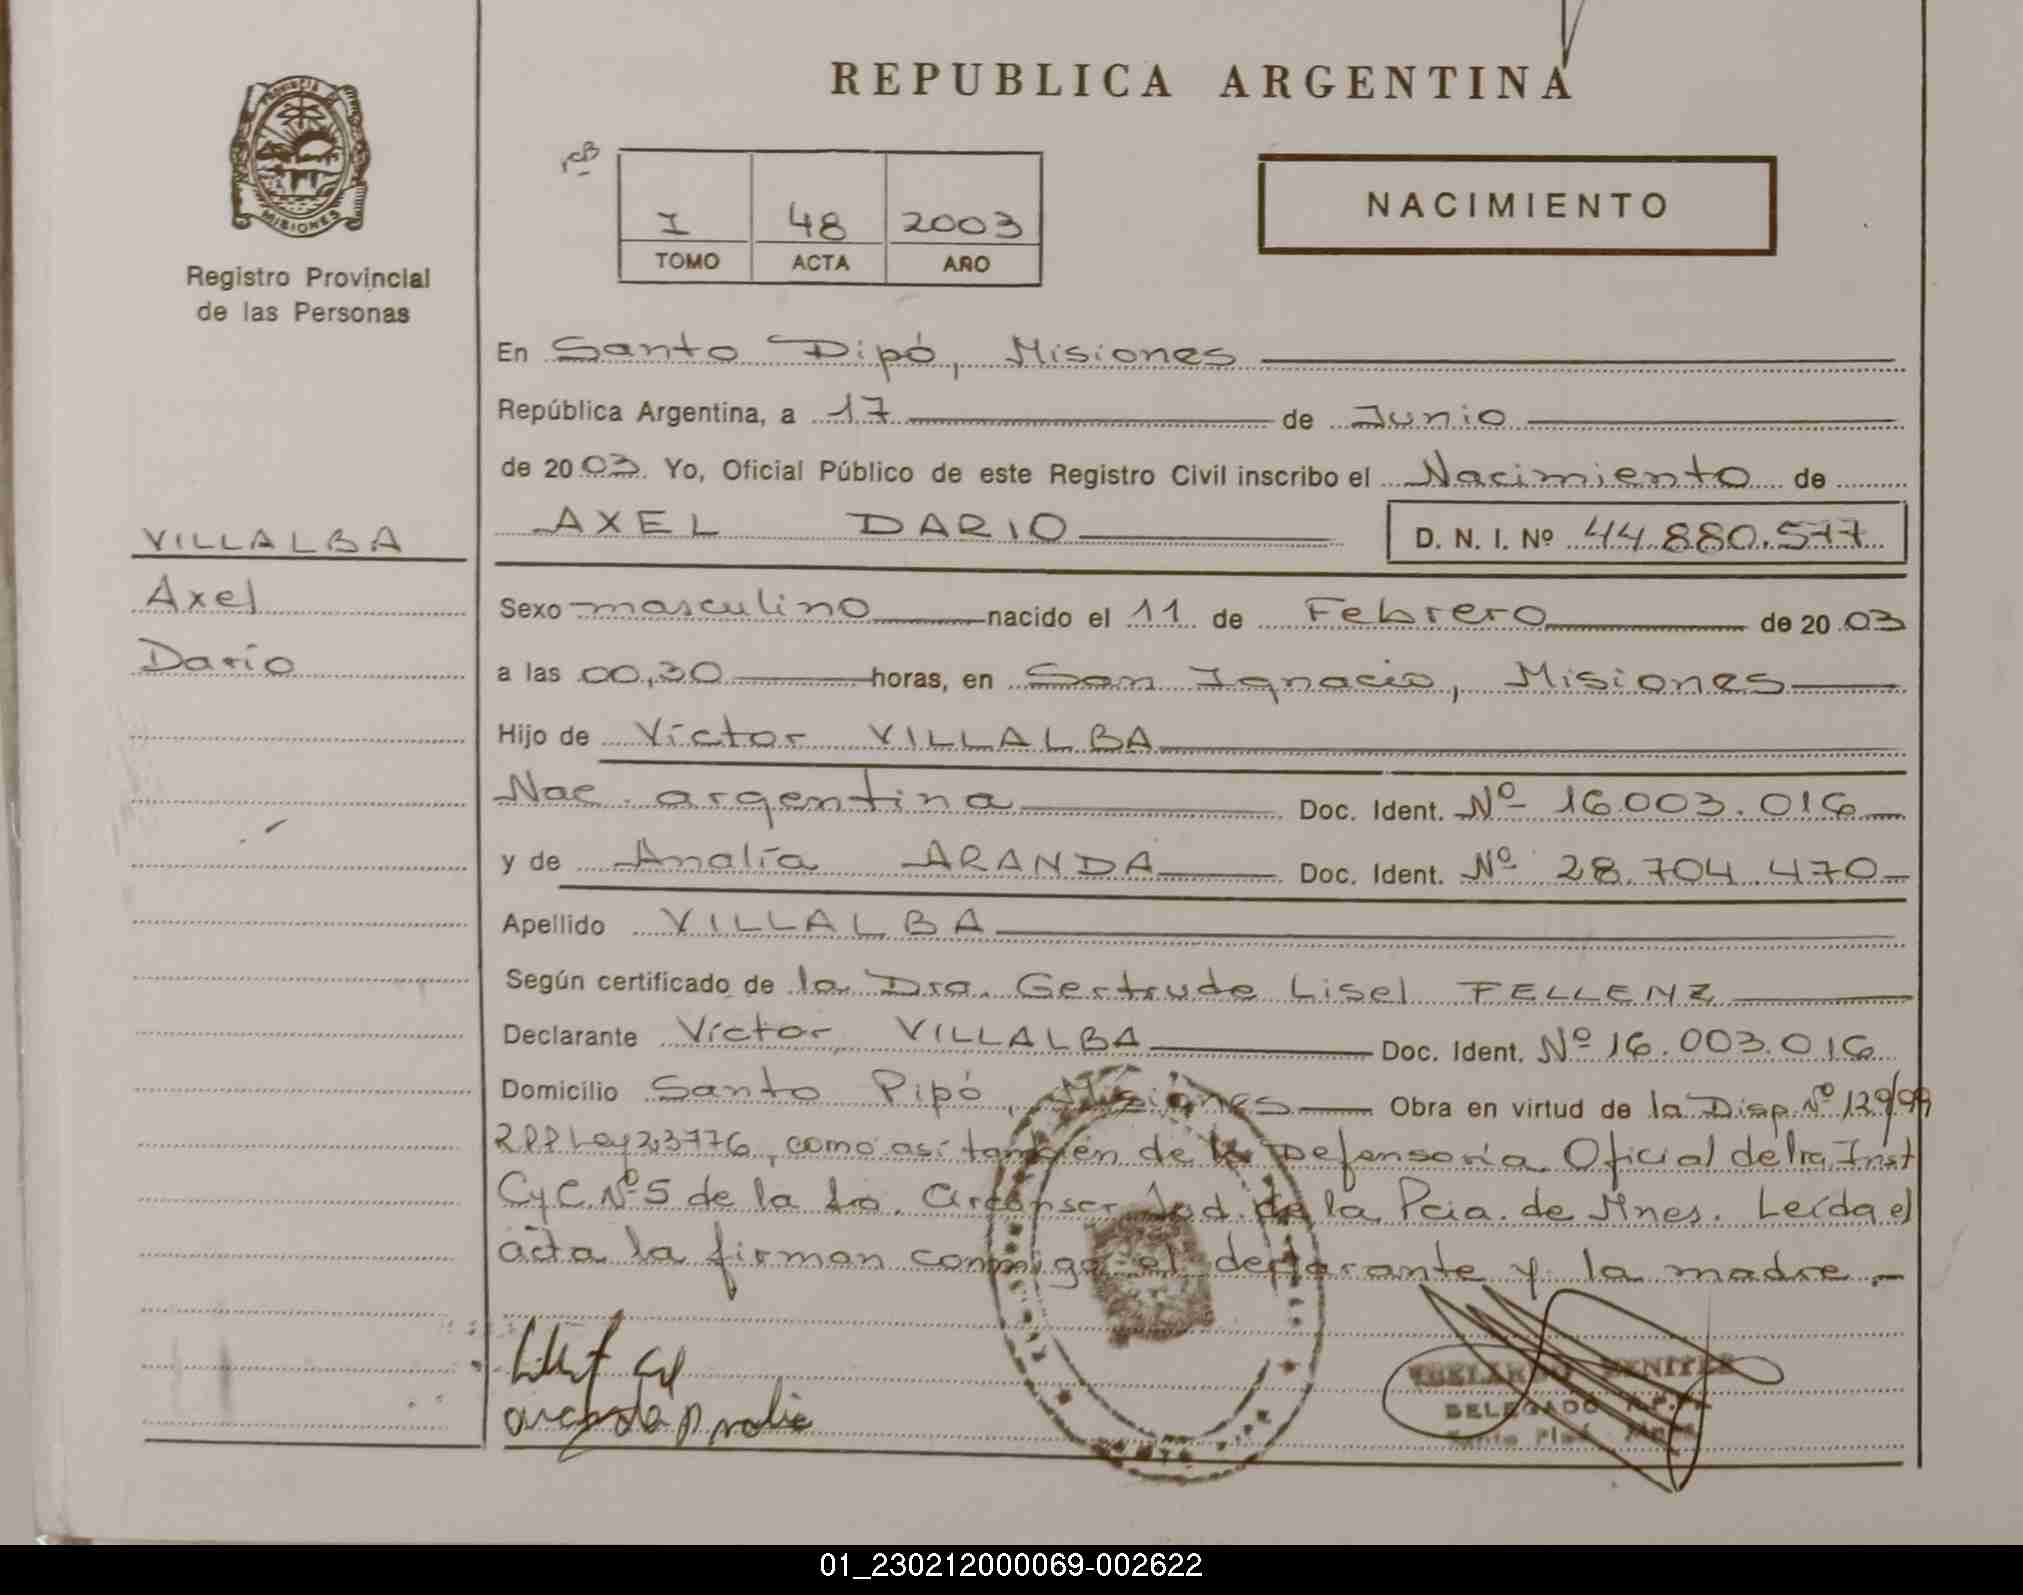 REPUBLICA ARGENTINA
PROVINCIA DE
MISIONES
Registro Provincial
de las Personas
I 48 2003
TOMO ACTA AÑO
NACIMIENTO
En Santo Pipó, Misiones
República Argentina, a 17 de Junio
de 2003. Yo, Oficial Público de este Registro Civil inscribo el Nacimiento de
AXEL DARIO D. N. I. Nº 44.880.577
VILLALBA
Axel
Darío
Sexo masculino nacido el 11 de Febrero de 2003
a las 00,30 horas, en San Ignacio, Misiones
Hijo de Víctor VILLALBA
Nac. argentina Doc. Ident. Nº 16.003.016
y de Analía ARANDA Doc. Ident. Nº 28.704.470
Apellido VILLALBA
Según certificado de la Dra. Gertrude Lisel FELLENZ
Declarante Víctor VILLALBA Doc. Ident. Nº 16.003.016
Domicilio Santo Pipó, Misiones Obra en virtud de la Disp. Nº 129/99
RPP Ley 23776, como así también de la Defensoría Oficial de 1ra Inst
CyC. Nº 5 de la 1a. Circonscr. Jud. de la Pcia. de Mnes. Leída el
acta la firman conmigo el declarante y la madre.-
DELEGADO
01_230212000069-002622